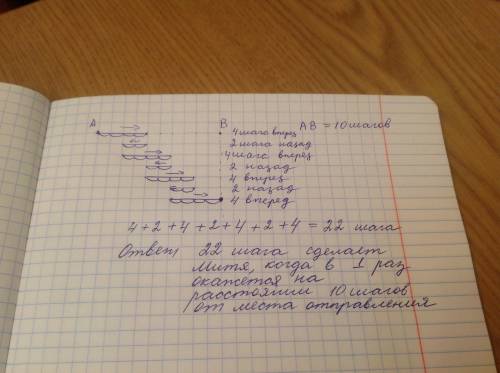 А В АВ = 10 шагов
4 шага вперед
2 шага назад
4 шага вперед
2 назад
4 вперед
2 назад
4 вперед
4+2+4+2+4+2+4 = 22 шага
Ответ: 22 шага сделает
Митя, когда в 1 раз
окажется на
расстоянии 10 шагов
от места отправления